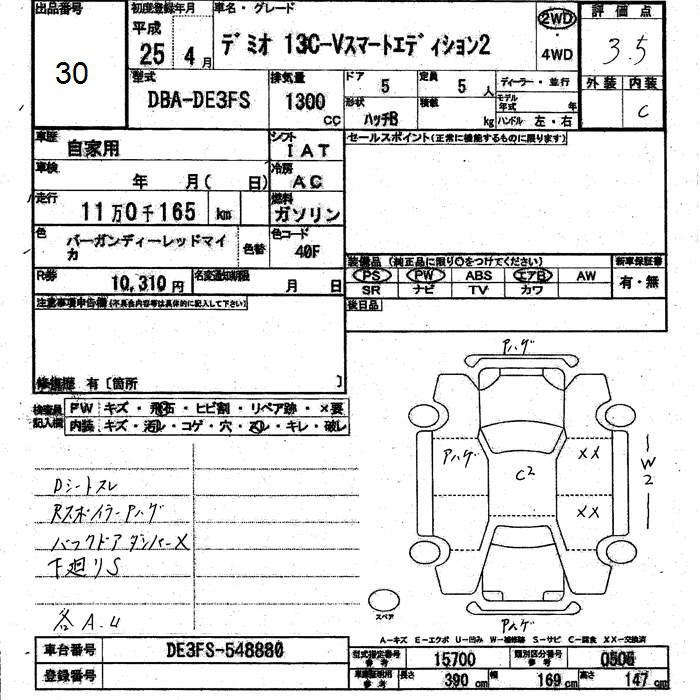 出品番号 初度登録年月 車名・グレード 評価点
30
平成 25年 4月
デミオ 13C-Vスマートエディション2
2WD・4WD
3.5
外装 内装
C
型式 排気量 ドア 定員 ディーラー・並行
DBA-DE3FS 1300CC 5 5人
形状 積載 モデル年式 年
ハッチB kg ハンドル 左・右
車歴 シフト セールスポイント(正常に機能するものに限ります)
自家用 IAT
車検 冷房
年 月( 日) AC
走行 燃料
11万0千165 km ガソリン
色 色替 色コード
バーガンディーレッドマイカ 40F
装備品(純正品に限り○をつけてください) 新車保証書
PS PW ABS エアB AW
SR ナビ TV カワ
有・無
R券 名変通知期限
10,310円 月 日
後日品
注意事項申告欄(不具合内容等は具体的に記入して下さい)
修復歴 有〔箇所 〕
検査員記入欄
PW キズ・飛石・ヒビ割・リペア跡・×要
内装 キズ・汚レ・コゲ・穴・スレ・キレ・破レ
アハゲ
アハゲ
C2
XX
XX
W2
Dシートスレ
Rスポイラーアハゲ
バックドアダンパーX
下廻りS
各A.U
スペア
アハゲ
A-キズ E-エクボ U-凹み W-補修跡 S-サビ C-腐食 XX-交換済
車台番号 DE3FS-548880
登録番号
型式指定番号 参考 15700 類別区分番号 参考 0506
車庫証明用 参考 長さ 390cm 幅 169cm 高さ 147cm